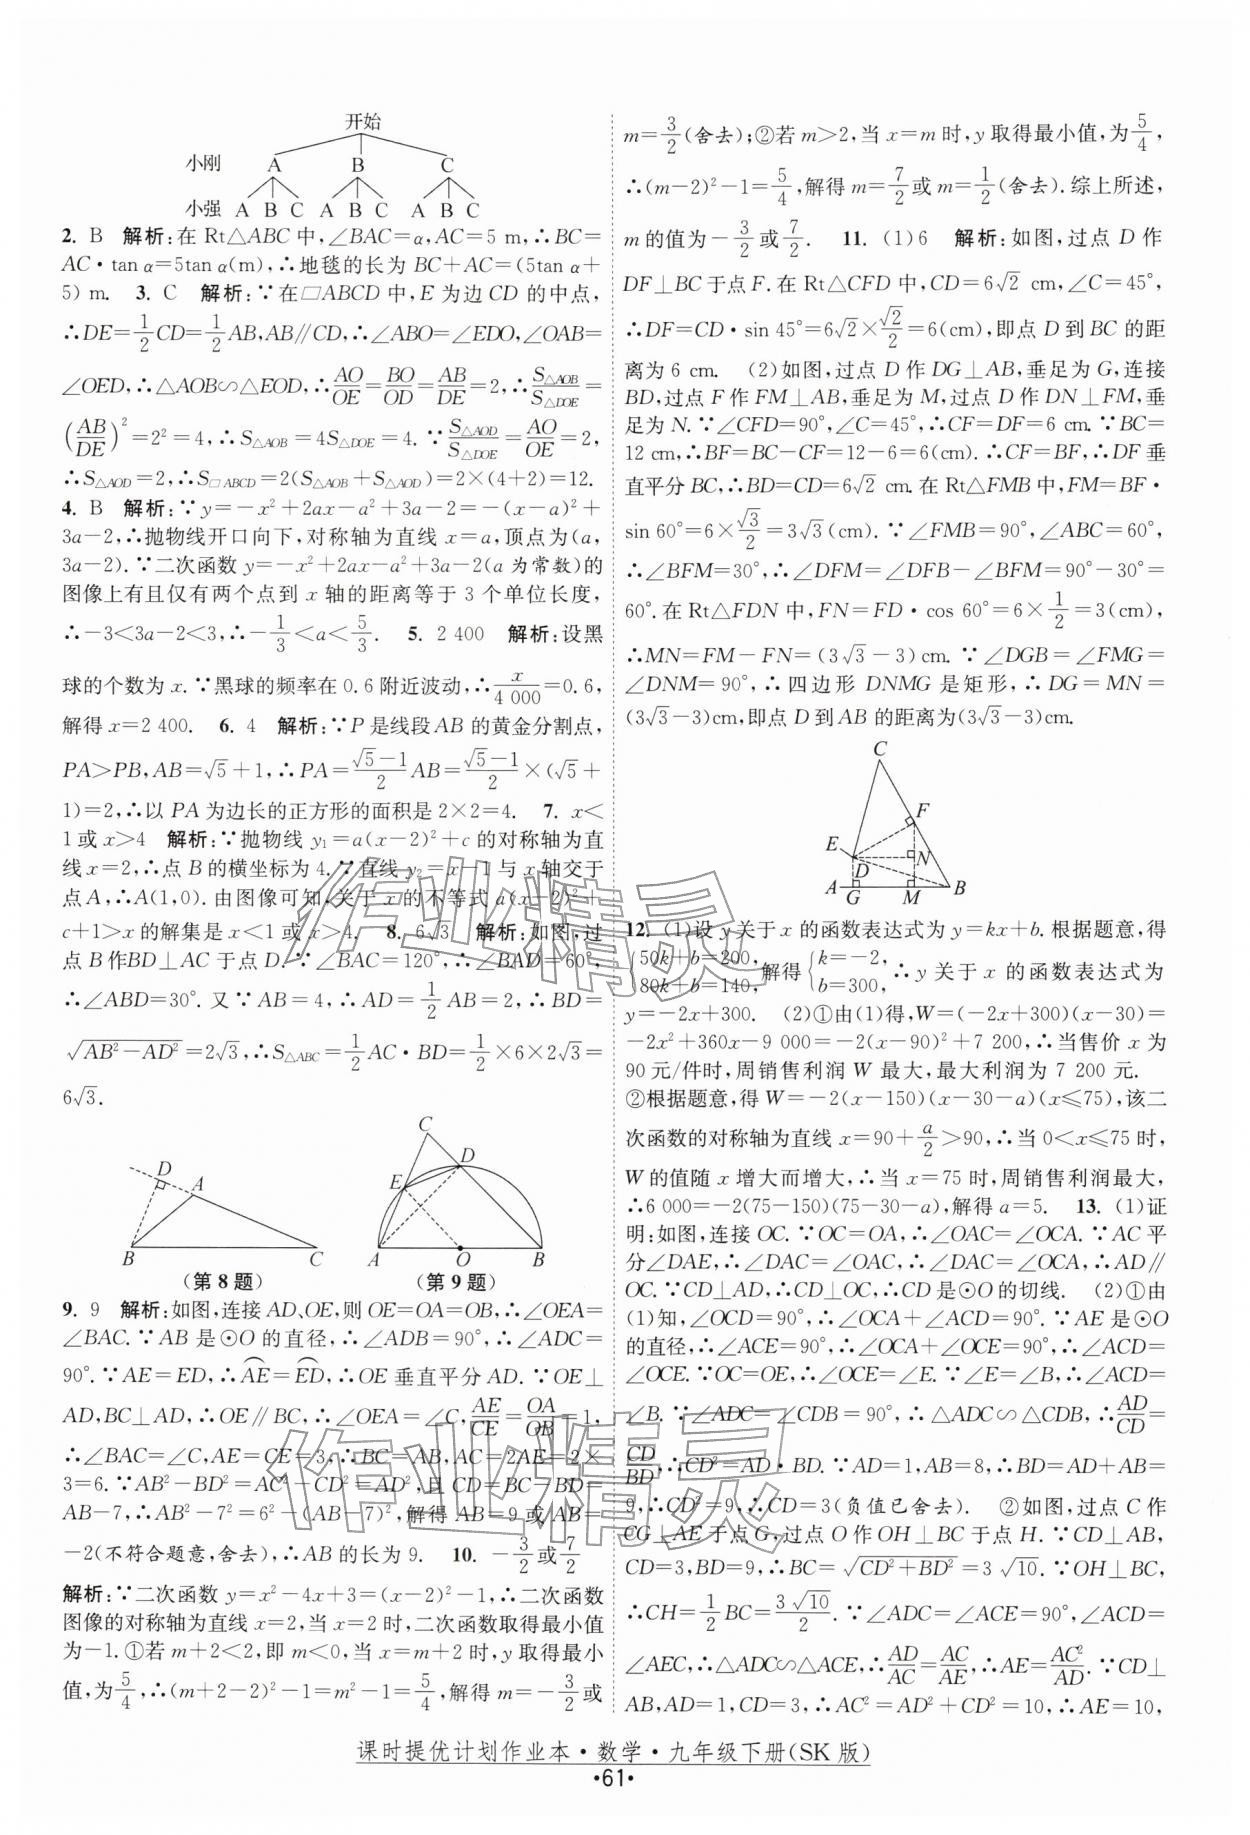 开始
小刚 A B C
小强 A B C A B C A B C
2. B 解析:在 Rt△ABC 中,∠BAC=α,AC=5 m,∴BC=
AC·tan α=5tan α(m),∴地毯的长为 BC+AC=(5tan α+
5) m. 3. C 解析:∵在□ABCD 中,E 为边 CD 的中点,
∴DE=1/2CD=1/2AB,AB∥CD,∴∠ABO=∠EDO,∠OAB=
∠OED,∴△AOB∽△EOD,∴AO/OE=BO/OD=AB/DE=2,∴S△AOB/S△DOE=
(AB/DE)²=2²=4,∴S△AOB=4S△DOE=4. ∵S△AOD/S△DOE=AO/OE=2,
∴S△AOD=2,∴S□ABCD=2(S△AOB+S△AOD)=2×(4+2)=12.
4. B 解析:∵y=-x²+2ax-a²+3a-2=-(x-a)²+
3a-2,∴抛物线开口向下,对称轴为直线 x=a,顶点为(a,
3a-2).∵二次函数 y=-x²+2ax-a²+3a-2(a 为常数)的
图像上有且仅有两个点到 x 轴的距离等于 3 个单位长度,
∴-3<3a-2<3,∴-1/3<a<5/3. 5. 2 400 解析:设黑
球的个数为 x.∵黑球的频率在 0.6 附近波动,∴x/4 000=0.6,
解得 x=2 400. 6. 4 解析:∵P 是线段 AB 的黄金分割点,
PA>PB,AB=√5+1,∴PA=(√5-1)/2 AB=(√5-1)/2×(√5+
1)=2,∴以 PA 为边长的正方形的面积是 2×2=4. 7. x<
1 或 x>4 解析:∵抛物线 y₁=a(x-2)²+c 的对称轴为直
线 x=2,∴点 B 的横坐标为 4.∵直线 y₂=x-1 与 x 轴交于
点 A,∴A(1,0).由图像可知,关于 x 的不等式 a(x-2)²+
c+1>x 的解集是 x<1 或 x>4. 8. 6√3 解析:如图,过
点 B 作BD⊥AC 于点 D.∵∠BAC=120°,∴∠BAD=60°,
∴∠ABD=30°. 又∵AB=4,∴AD=1/2AB=2,∴BD=
√(AB²-AD²)=2√3,∴S△ABC=1/2AC·BD=1/2×6×2√3=
6√3.
D A B C
C E D A O B
(第 8 题) (第 9 题)
9. 9 解析:如图,连接 AD、OE,则 OE=OA=OB,∴∠OEA=
∠BAC.∵AB 是⊙O 的直径,∴∠ADB=90°,∴∠ADC=
90°.∵AE=ED,∴⌒AE=⌒ED,∴OE 垂直平分 AD.∵OE⊥
AD,BC⊥AD,∴OE∥BC,∴∠OEA=∠C,AE/CE=OA/OB=1,
∴∠BAC=∠C,AE=CE=3,∴BC=AB,AC=2AE=2×
3=6.∵AB²-BD²=AC²-CD²=AD²,且 CD=BC-BD=
AB-7,∴AB²-7²=6²-(AB-7)²,解得 AB=9 或 AB=
-2(不符合题意,舍去),∴AB 的长为 9. 10. -3/2或7/2
解析:∵二次函数 y=x²-4x+3=(x-2)²-1,∴二次函数
图像的对称轴为直线 x=2,当 x=2 时,二次函数取得最小值
为-1.①若 m+2<2,即 m<0,当 x=m+2 时,y 取得最小
值,为5/4,∴(m+2-2)²-1=m²-1=5/4,解得 m=-3/2或
m=3/2(舍去);②若 m>2,当 x=m 时,y 取得最小值,为5/4,
∴(m-2)²-1=5/4,解得 m=7/2或 m=1/2(舍去).综上所述,
m 的值为-3/2或7/2. 11. (1)6 解析:如图,过点 D 作
DF⊥BC 于点 F.在 Rt△CFD 中,CD=6√2 cm,∠C=45°,
∴DF=CD·sin 45°=6√2×√2/2=6(cm),即点 D 到 BC 的距
离为 6 cm. (2)如图,过点 D 作 DG⊥AB,垂足为 G,连接
BD,过点 F 作 FM⊥AB,垂足为 M,过点 D 作 DN⊥FM,垂
足为 N.∵∠CFD=90°,∠C=45°,∴CF=DF=6 cm.∵BC=
12 cm,∴BF=BC-CF=12-6=6(cm).∴CF=BF,∴DF 垂
直平分 BC,∴BD=CD=6√2 cm.在 Rt△FMB 中,FM=BF·
sin 60°=6×√3/2=3√3(cm). ∵∠FMB=90°,∠ABC=60°,
∴∠BFM=30°,∴∠DFM=∠DFB-∠BFM=90°-30°=
60°.在 Rt△FDN 中,FN=FD·cos 60°=6×1/2=3(cm),
∴MN=FM-FN=(3√3-3)cm.∵∠DGB=∠FMG=
∠DNM=90°,∴四边形 DNMG 是矩形,∴DG=MN=
(3√3-3)cm,即点 D 到 AB 的距离为(3√3-3)cm.
C F E N D A G M B
12. (1)设 y 关于 x 的函数表达式为 y=kx+b.根据题意,得
{50k+b=200, 80k+b=140, 解得{k=-2, b=300, ∴y 关于 x 的函数表达式为
y=-2x+300. (2)①由(1)得,W=(-2x+300)(x-30)=
-2x²+360x-9 000=-2(x-90)²+7 200,∴当售价 x 为
90 元/件时,周销售利润 W 最大,最大利润为 7 200 元.
②根据题意,得 W=-2(x-150)(x-30-a)(x≤75),该二
次函数的对称轴为直线 x=90+a/2>90,∴当 0<x≤75 时,
W 的值随 x 增大而增大,∴当 x=75 时,周销售利润最大,
∴6 000=-2(75-150)(75-30-a),解得 a=5. 13. (1)证
明:如图,连接 OC.∵OC=OA,∴∠OAC=∠OCA.∵AC 平
分∠DAE,∴∠DAC=∠OAC,∴∠DAC=∠OCA,∴AD∥
OC.∵CD⊥AD,∴CD⊥OC,∴CD 是⊙O 的切线. (2)①由
(1)知,∠OCD=90°,∴∠OCA+∠ACD=90°.∵AE 是⊙O
的直径,∴∠ACE=90°,∴∠OCA+∠OCE=90°,∴∠ACD=
∠OCE.∵OC=OE,∴∠OCE=∠E.∵∠E=∠B,∴∠ACD=
∠B. ∵∠ADC=∠CDB=90°,∴△ADC∽△CDB,∴AD/CD=
CD/BD,∴CD²=AD·BD.∵AD=1,AB=8,∴BD=AD+AB=
9,∴CD²=9,∴CD=3(负值已舍去). ②如图,过点 C 作
CG⊥AE 于点 G,过点 O 作 OH⊥BC 于点 H.∵CD⊥AB,
CD=3,BD=9,∴BC=√(CD²+BD²)=3√10.∵OH⊥BC,
∴CH=1/2BC=3√10/2.∵∠ADC=∠ACE=90°,∠ACD=
∠AEC,∴△ADC∽△ACE,∴AD/AC=AC/AE,∴AE=AC²/AD.∵CD⊥
AB,AD=1,CD=3,∴AC²=AD²+CD²=10,∴AE=10,
作业精灵
作业精灵
课时提优计划作业本·数学·九年级下册(SK 版)
·61·